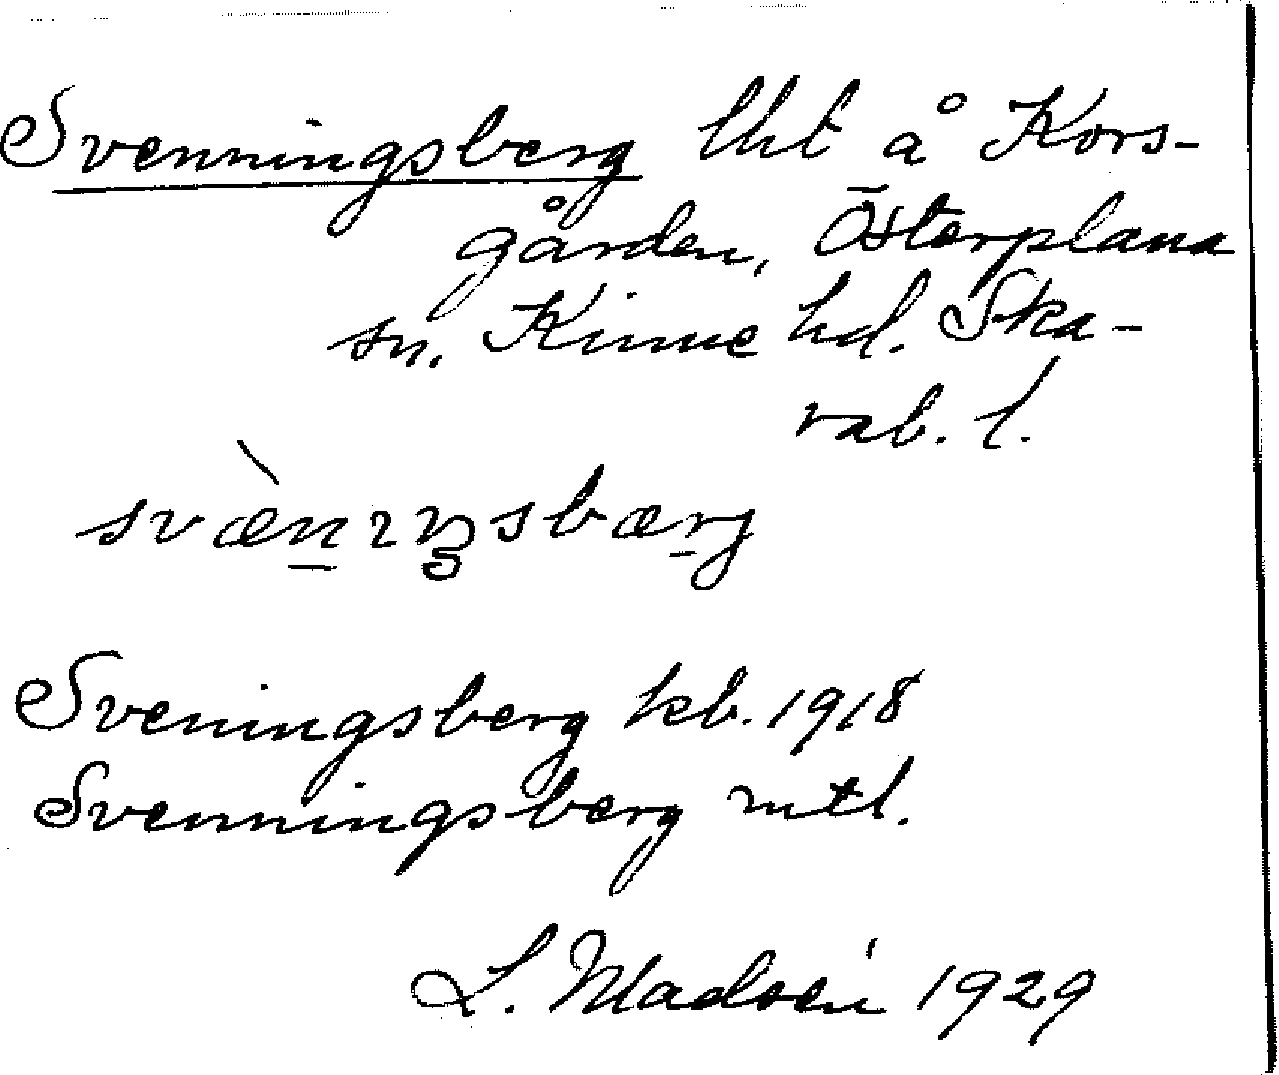 Svenningsberg lht å Kors-
gården, Österplana
sn. Kinne hd. Ska-
rab. l.
Sveningsberg kb. 1918
Svenningsberg mtl.
L. Madsén 1929